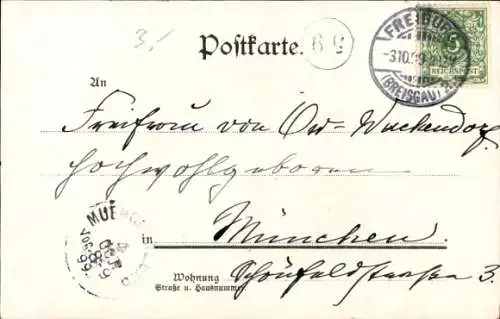 3.
Postkarte.
59
FREIBURG
-3.10.99
(BREISGAU)
5
REICHSPOST
An
Freifrau von Ow-Wachendorf
hochwohlgeboren
MUENCHEN
in München
Wohnung Schönfeldstrasse 3.
Straße u. Hausnummer